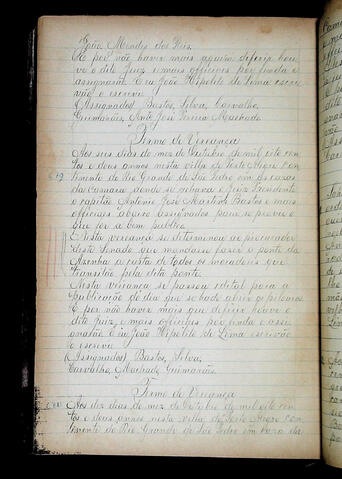 João Mendes dos Reis
E por não haver mais a quem diferir hou
ve o dito Juiz e mais officiaes por finda e
assignarão Eu João Hipolito de Lima escri
vão o escrevi
(Assignados) Bastos, Silva, Carvalho,
Guimarães, Ant.º José Machado
Termo de Vereança
Aos seis dias do mez de Outubro de mil oito cen
tos e dous annos nesta villa de Porto Alegre Con
tinente do Rio Grande de São Pedro em as cazas
da Camara aonde se achava o Juiz Presidente
o capitão Antonio José Martins Bastos e mais
officiaes abaixo assignados para se prover o
que for a bem publico
E nesta vereança se determinou ao procurador
deste Senado que mandasse fazer a ponte da
Azenha a custa de todos os moradores que
transitão pela dita ponte
Nesta vereança se passou edital para a
publicação do dia que se hade abrir os pelouros
E por não haver mais que deferir houve o
dito Juiz e mais officiaes por finda e assi
gnarão E eu João Hipolito de Lima escrivão
o escrevi
(Assignados) Bastos, Silva,
Carvalho, Machado, Guimarães
Termo de Vereança
Aos dez dias do mez de Outubro de mil oito cen
tos e dous annos nesta villa de Porto Alegre Con
tinente do Rio Grande de São Pedro em caza da